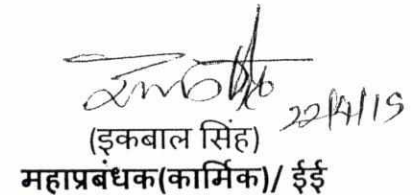 22/4/15
(इकबाल सिंह)
महाप्रबंधक(कार्मिक)/ ईई